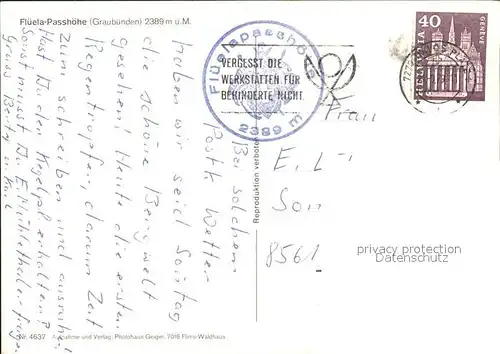 Flüela-Passhöhe (Graubünden) 2389 m ü. M.
Flüelapasshöhe
2389 m
VERGESST DIE
WERKSTÄTTEN FÜR
BEHINDERTE NICHT
HELVETIA
40
GENEVE
Bei solchem
Postk Wetter
haben wir seid Sontag
die schöne Bergwelt
gesehen! Heute die ersten
Regentropfen, darum Zeit
zum schreiben und ausruhen
Hast Du den Kegelpal erhalten?
Sonst musst Du E. Mühlethaler fragen
Gruss Berty u. Karl
Frau
E. L
Son
8561
Reproduktion verboten
privacy protection
Datenschutz
Nr. 4637 Aufnahme und Verlag: Photohaus Geiger, 7018 Flims-Waldhaus